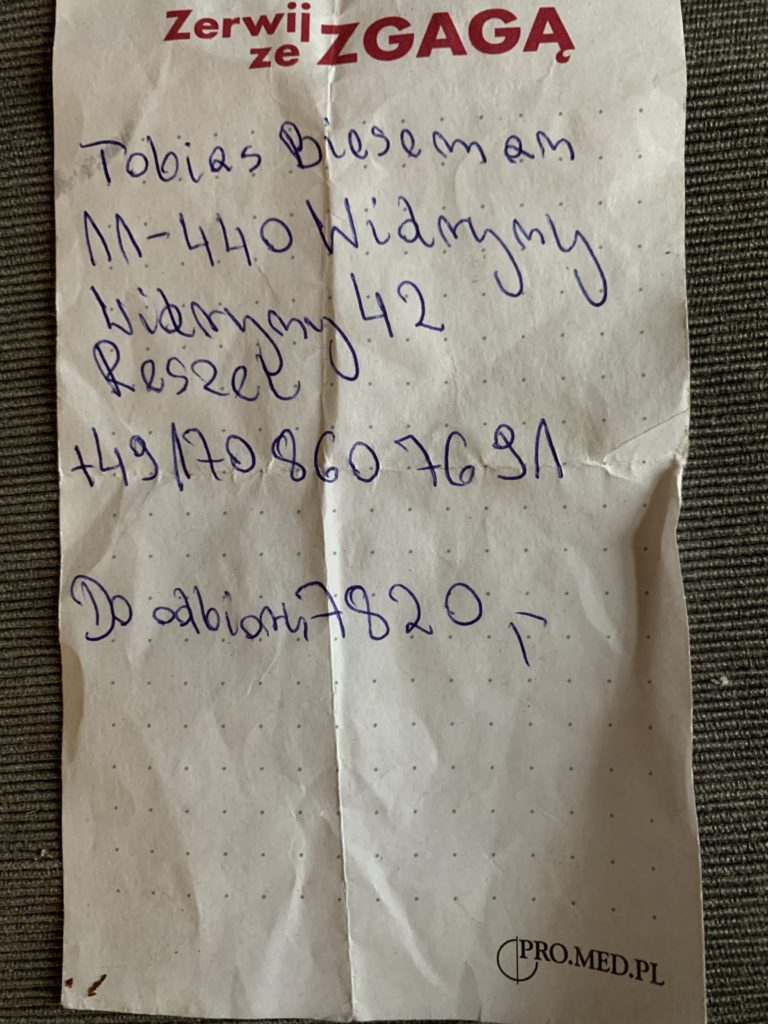 Zerwij
ze ZGAGĄ
Tobias Biesemam
11-440 Widryny
Widryny 42
Reszel
+49/170 860 7691
Do odbioru 7820,-
PRO.MED.PL